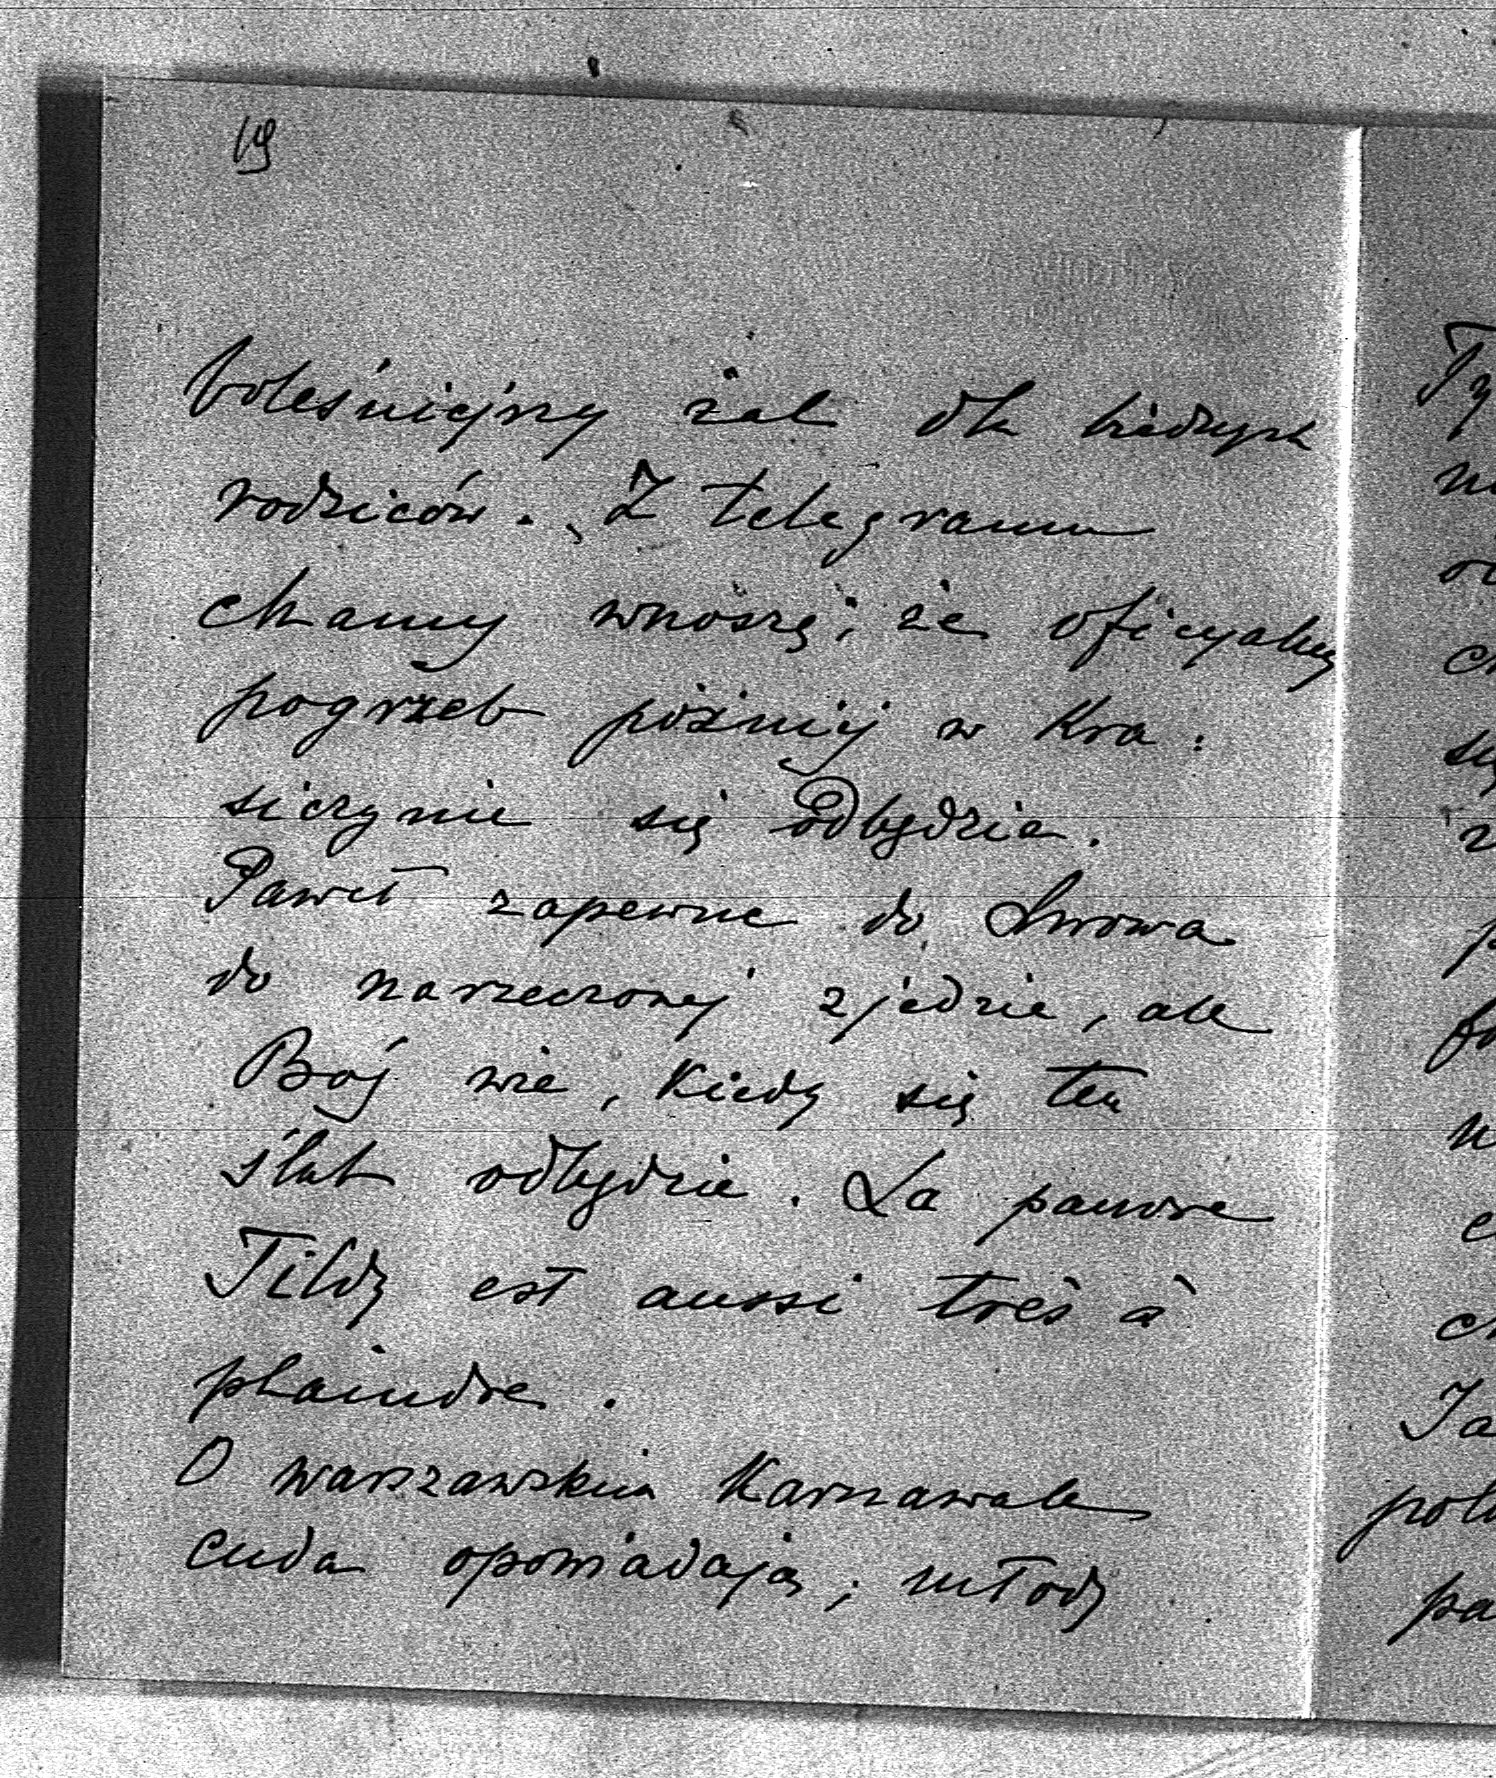 19
boleśniejszy żal dla biednych
rodziców. Z telegramu
mamy wnoszę; że oficyalny
pogrzeb późniéj w Kra:
siczynie się odbędzie.
Paweł zapewne do Lwowa
do narzeczonej zjedzie, ale
Bóg wie, kiedy się ten
ślub odbędzie. La pauvre
Tildy est aussi très à
plaindre.
O warszawskim Karnawale
cuda opowiadają; młody